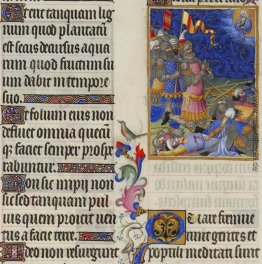 Erit tanquam lig
num quod plantatū
est secus decursus aquā
rum quod fructum su
um dabit in tempore
suo.
Et folium eius non
defluet omnia quecū
q; faciet semper prospe
rabuntur.
Non sic impii non
sic sed tanquam pul
uis quem proicit uen
tus a facie terre.
Ideo non resurgunt
Quare fremue
runt gentes et
populi meditati sunt